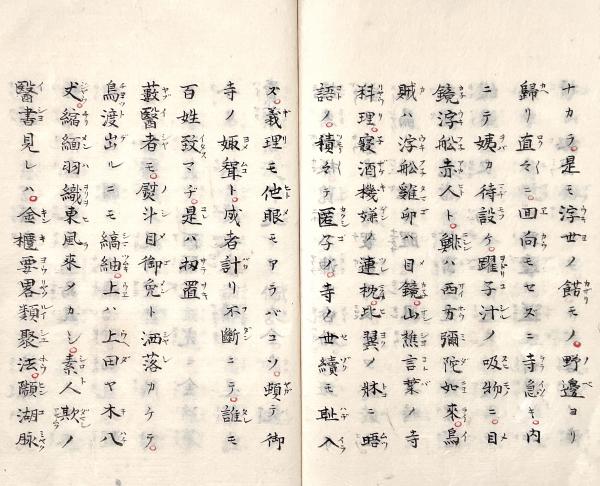 ナカラ是モ浮世ノ餝モノ野邊ヨリ
歸リ直々ニ回向モセズニ寺急キ内
ニテ姨カ待設ケ躍子汁ノ吸物ニ目
鏡浮舩赤人ト鯡ハ西方彌陀如來烏
賊ハ浮舩雞卵ハ目鏡山樵言葉ノ寺
料理寝酒機嫌ノ連枕比翼ノ牀ニ晤
語ノ積々テ匿子ノ寺ノ世續モ耻入
ズ義理モ他眼モアラバコソ頓テ御
寺ノ娵聟ト威者計リ不斷ニテ誰モ
百姓致マヂ是ハ扨置
藪醫者モ熨斗目御免ト洒落カケテ
鳥渡出ルニモ縞紬上ハ上田ヤ木八
丈縮緬羽織東風來メカシ素人欺ノ
醫書見レハ金櫃要畧類聚法顳湖脉